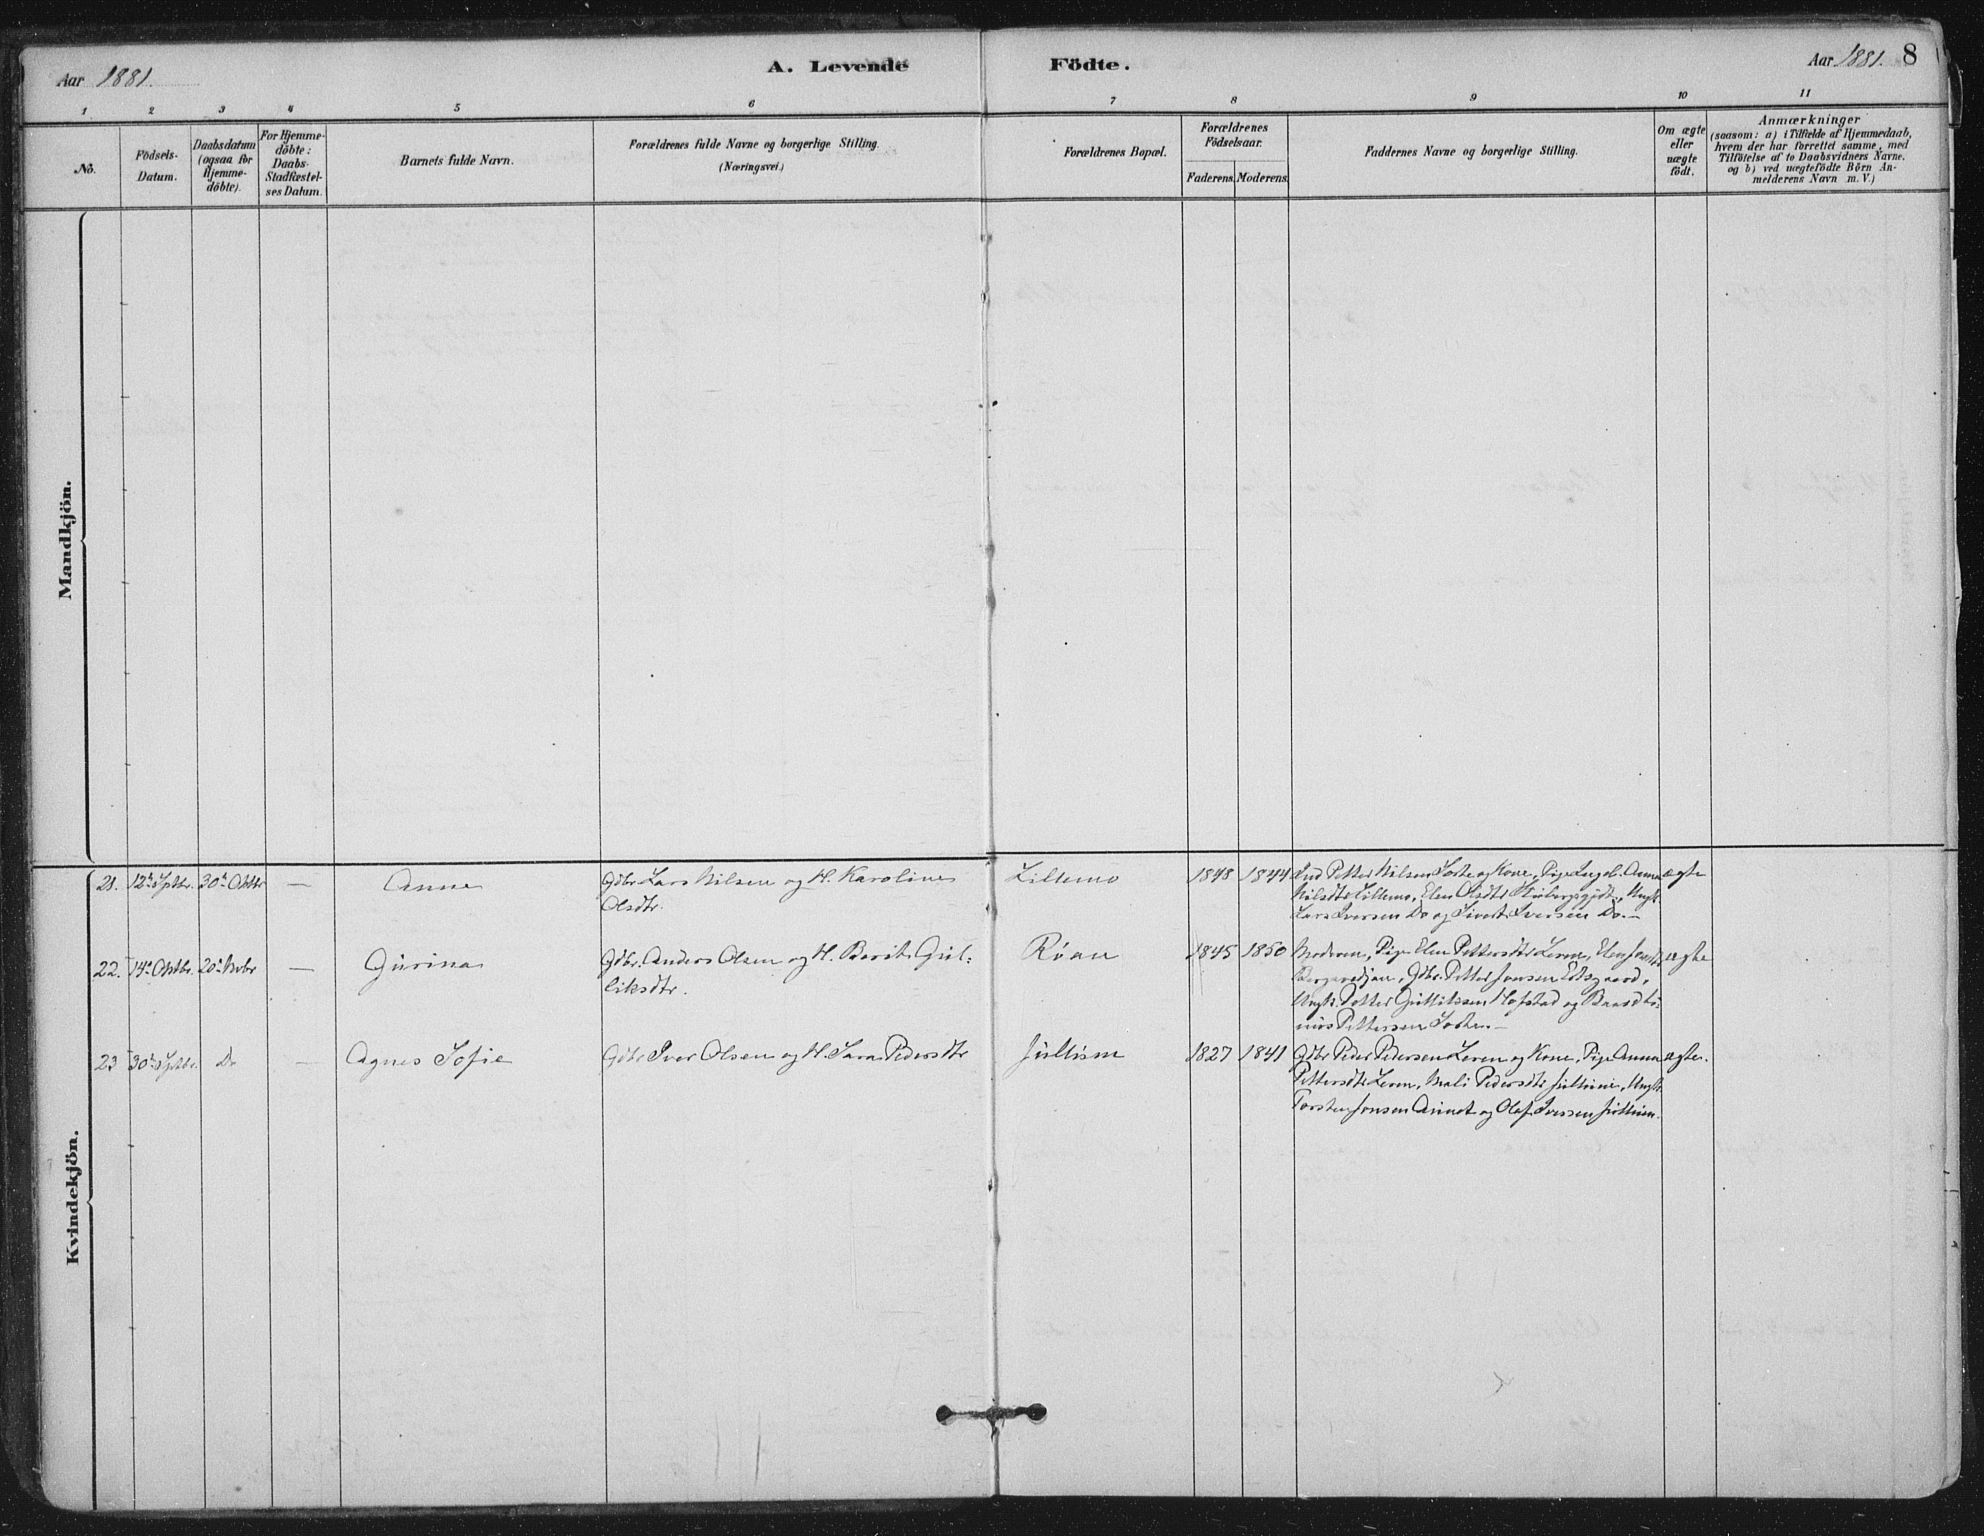 Aar 1881.
A. Levende Födte.
Aar 1881. 8
1 2 3 4 5 6 7 8 9 10 11
No.
Födsels-
Datum.
Daabsdatum
(ogsaa for
Hjemme-
döbte).
For Hjemme-
döbte:
Daabs-
Stadfæstel-
ses Datum.
Barnets fulde Navn.
Forældrenes fulde Navne og borgerlige Stilling.
(Næringsvei.)
Forældrenes Bopæl.
Forældrenes
Födselsaar.
Faderens. Moderens.
Faddernes Navne og borgerlige Stilling.
Om ægte
eller
uægte
födt.
Anmærkninger
(saasom: a) i Tilfælde af Hjemmedaab,
hvem der har forrettet samme, med
Tilföielse af to Daabsvidners Navne.
og b) ved uægtefödte Börn An-
melderens Navn m. V.)
Mandkjön.
Kvindekjön.
21. 12te Sptbr. 30te Oktbr — Anne Gdbr. Lars Nilsen og H. Karoline Lillemo 1848 1844 Petter Nilsen og Kone, Pige Anna ægte
Olsdtr. Nilsdtr Lillemo, Elen Olsdtr
Lars Iversen Do og Sivert Iversen Do. —
22. 14de Oktbr. 20de Novbr — Gurina Gdbr. Anders Olsen og H. Berit Gul- Røan 1845 1850 Moderen, Pige Elen Pettersdtr Leren, Elen ægte
liksdtr. Gdbr. Petter Jonsen
Ungk. Petter Hofstad og
Pettersen
23 30te Sptbr. Do — Agnes Sofie Gdbr Iver Olsen og H. Sara Pedersdtr Jullum 1827 1841 Gdbr Peder Pedersen Leren og Kone, Pige Anna ægte.
Pettersdtr Leren, Mali Pedersdtr Ungk.
Torsten Jonsen og Olaf Iversen